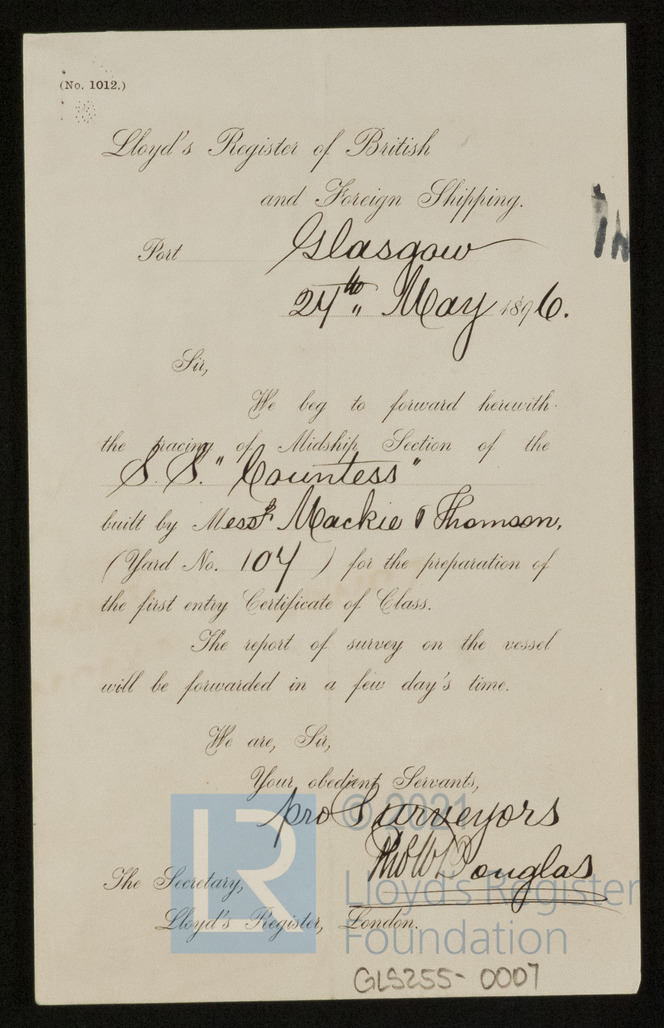 (No. 1012.)
Lloyd's Register of British
and Foreign Shipping.
Port Glasgow
24th May 1896.
Sir,
We beg to forward herewith
the tracing of Midship Section of the
S.S. "Countess"
built by Messrs Mackie & Thomson,
(Yard No. 104) for the preparation of
the first entry Certificate of Class.
The report of survey on the vessel
will be forwarded in a few day's time.
We are, Sir,
Your obedient Servants,
pro Surveyors
Douglas
The Secretary,
Lloyd's Register, London.
LR
© 2021
Lloyd's Register
Foundation
GLS255-0007